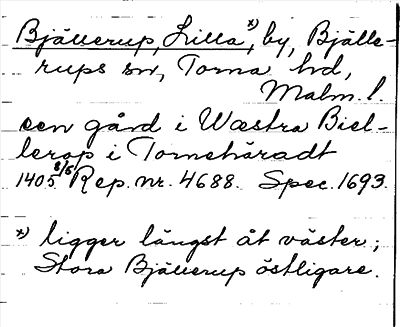 Bjällerup, Lilla *), by, Bjälle-
rups sn, Torna hd,
Malm. l.
een gård i Wæstra Biel-
lerop i Tornehäradt
1405 8/5 Rep. nr. 4688. Spec. 1693.
*) ligger längst åt väster;
Stora Bjällerup östligare.